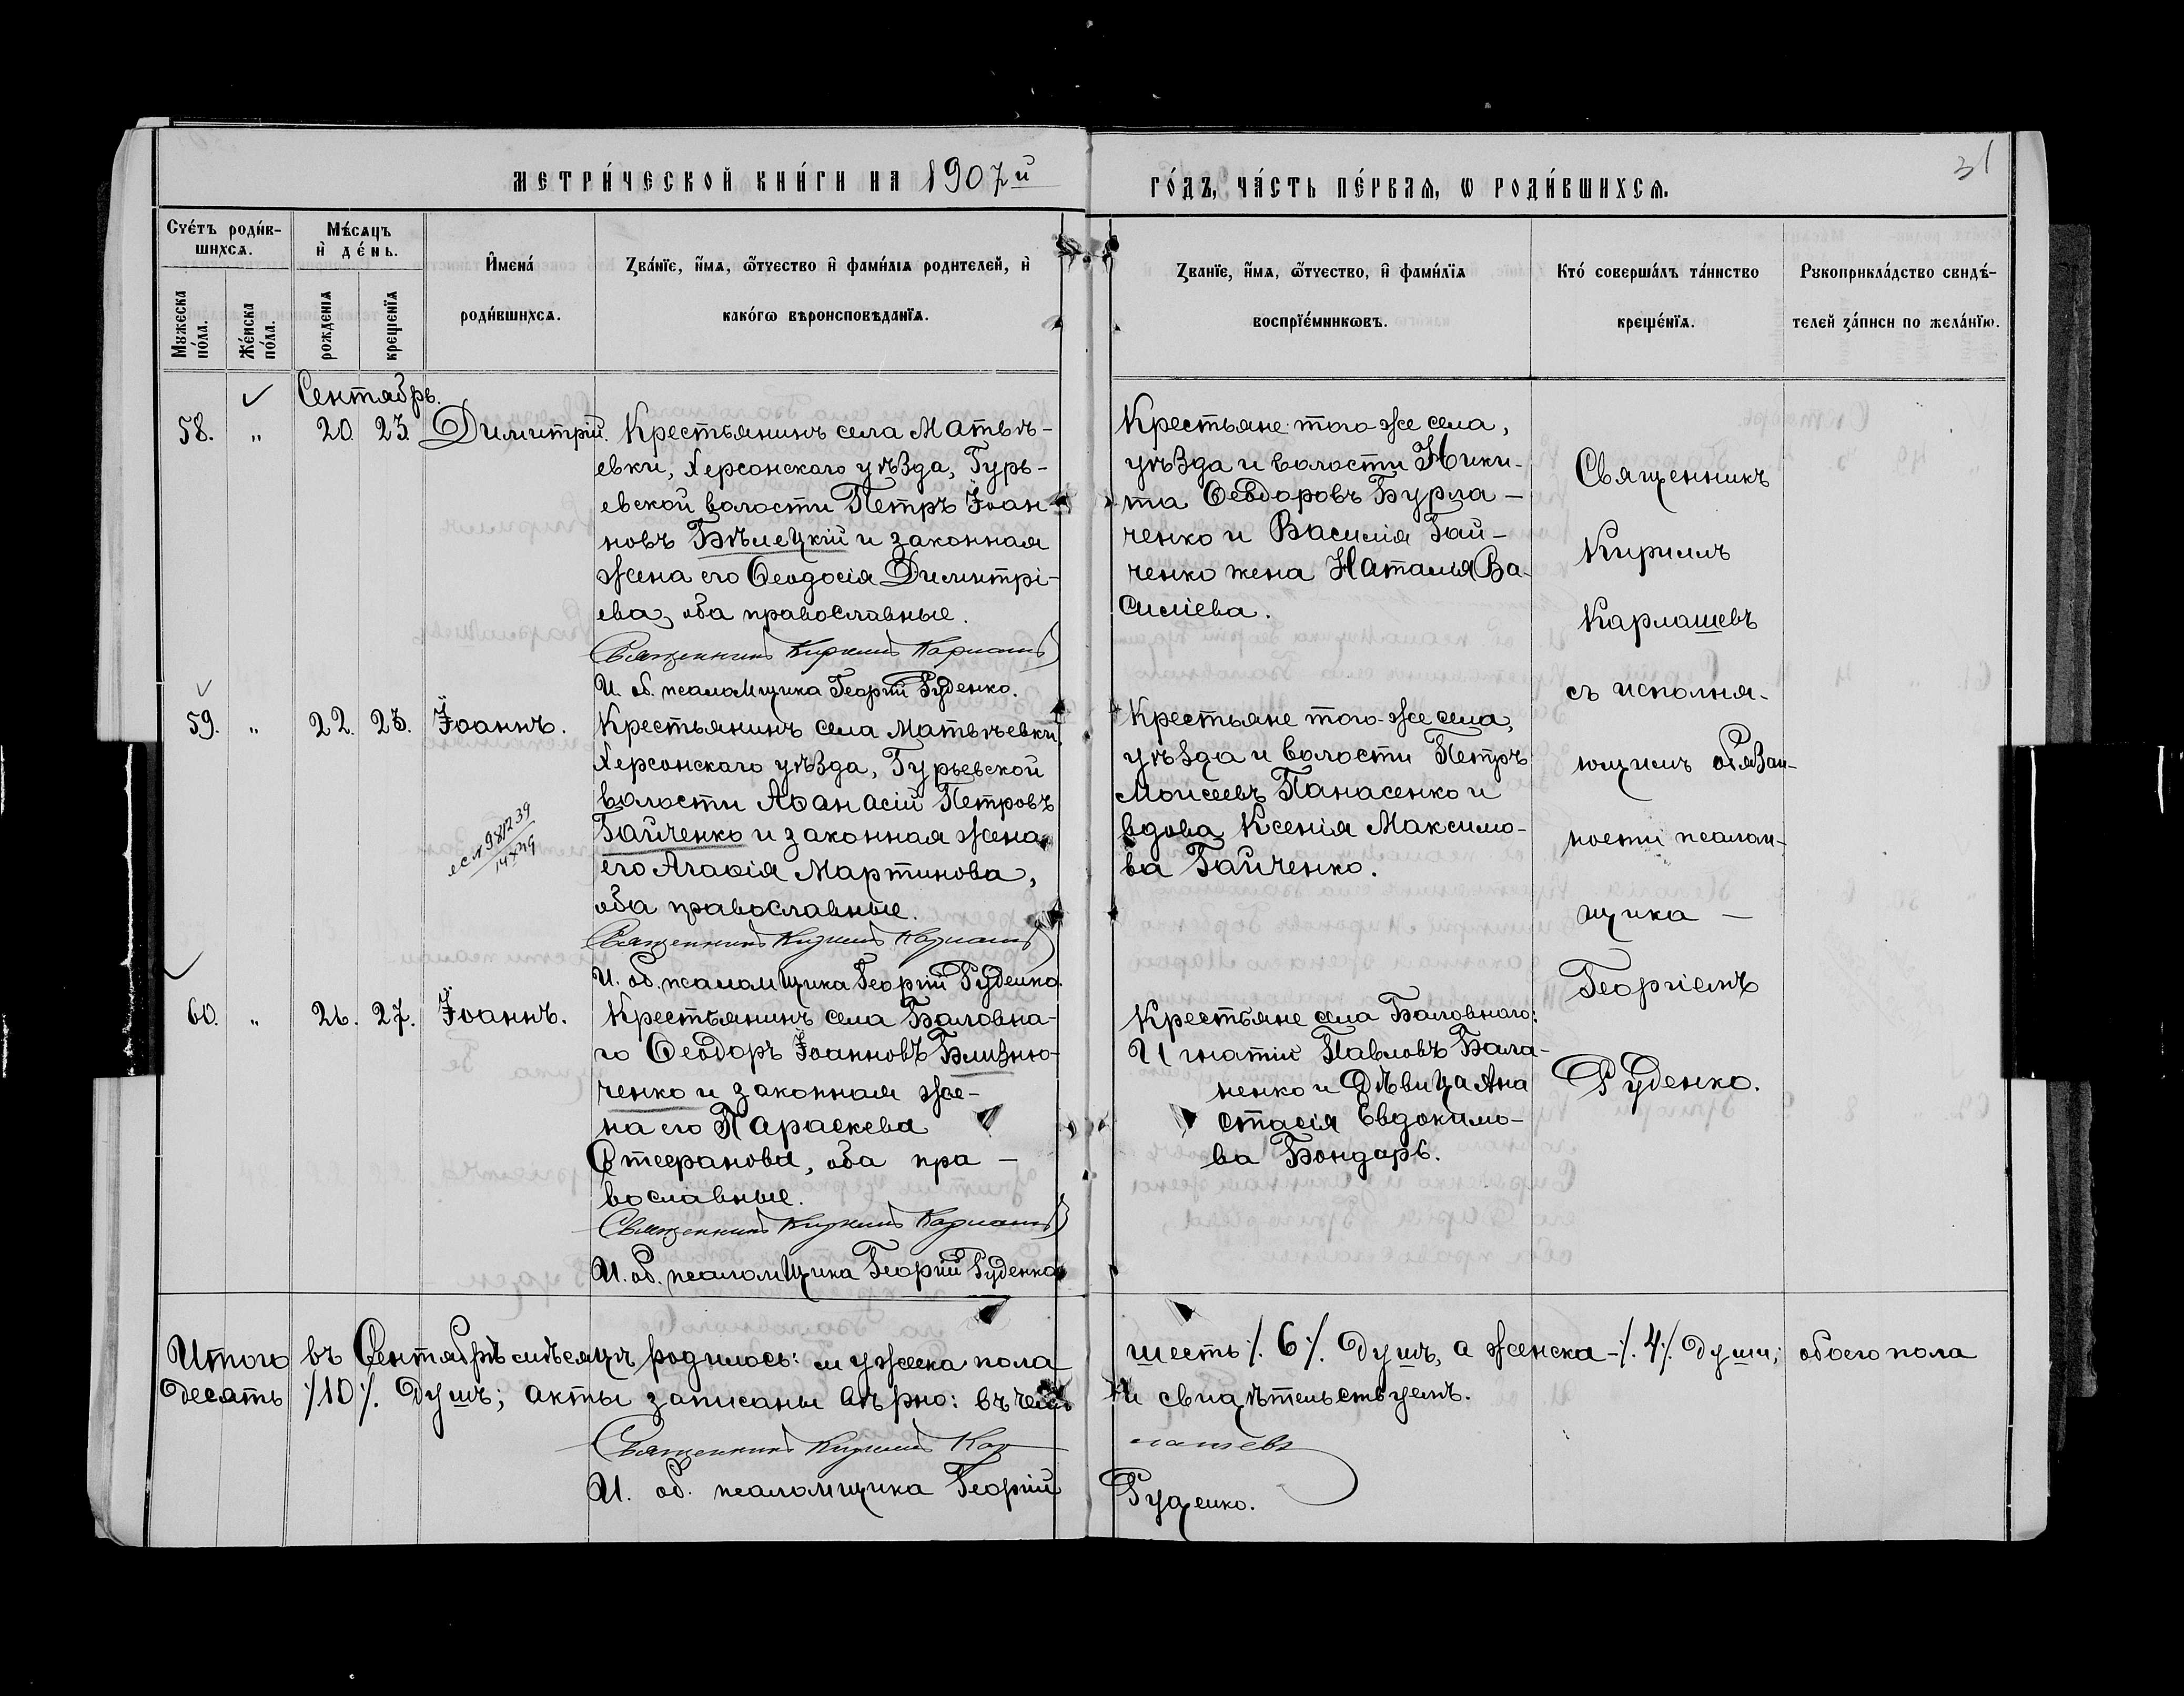 МЕТРИ́ЧЕСКОЙ КНИ́ГИ НА 1907й
ГО́ДЪ, ЧА́СТЬ ПЕ́РВАѦ, Ѡ РОДИ́ВШИХСѦ.
31
Сче́тъ роди́в-
шихсѧ.
Мужеска
по́ла.
Же́нска
по́ла.
Мѣ́сѧцъ
и҆ де́нь.
рожденїѧ
крещенїѧ
И҆мена́
роди́вшихсѧ.
Зва́нїе, и҆́мѧ, ѻ҆́тчество и҆ фами́лїѧ родителей, и҆
како́гѡ вѣроисповѣданїѧ.
Зва́нїе, и҆́мѧ, ѻ҆́тчество, и҆ фами́лїѧ
воспрїе́мникѡвъ.
Кто́ соверша́лъ та́инство
креще́нїѧ.
Рукоприкла́дство свидѣ́-
телей за́писи по жела́нїю.
Сентябрь.
58. " 20. 23. Димитрій.
Крестьянинъ села Матвѣ-
евки, Херсонскаго уѣзда, Гурь-
евской волости Петръ Іоан-
новъ Бѣлецкій и законная
жена его Ѳеодосія Димитрі-
ева, оба православные.
Священникъ Кириллъ Карлашевъ
И. об. псаломщика Георгій Руденко.
Крестьяне того-же села,
уѣзда и волости Ники-
та Ѳеодоровъ Бурла-
ченко и Василія Гай-
ченко жена Наталія Ва-
силіева.
59. " 22. 23. Іоаннъ.
Крестьянинъ села Матвѣевки,
Херсонскаго уѣзда, Гурьевской
волости Аѳанасій Петровъ
Гайченко и законная жена
его Агафія Мартинова,
оба православные.
Священникъ Кириллъ Карлашевъ
И. об. псаломщика Георгій Руденко.
Крестьяне того-же села,
уѣзда и волости Петръ
Моисеевъ Панасенко и
вдова Ксенія Максимо-
ва Гайченко.
60. " 26. 27. Іоаннъ.
Крестьянинъ села Баловна-
го Ѳеодоръ Іоанновъ Близню-
ченко и законная же-
на его Параскева
Стефанова, оба пра-
вославные.
Священникъ Кириллъ Карлашевъ
И. об. псаломщика Георгій Руденко
Крестьяне села Баловного:
Игнатій Павловъ Бала-
ненко и дѣвица Ана
стасія Евдокимо-
ва Бондарь.
Священникъ
Кириллъ
Карлашевъ
съ исполня-
ющимъ обязан-
ности псалом-
щика —
Георгіемъ
Руденко.
Итого въ Сентябрѣ мѣсяцѣ родилось: мужеска пола шесть /. 6 /. душъ, а женска -/. 4 /. души; обоего пола
десять /10/. душъ; акты записаны вѣрно: въ чемъ и свидѣтельствуемъ.
Священникъ Кириллъ Карлашевъ
И. об. псаломщика Георгій Руденко.